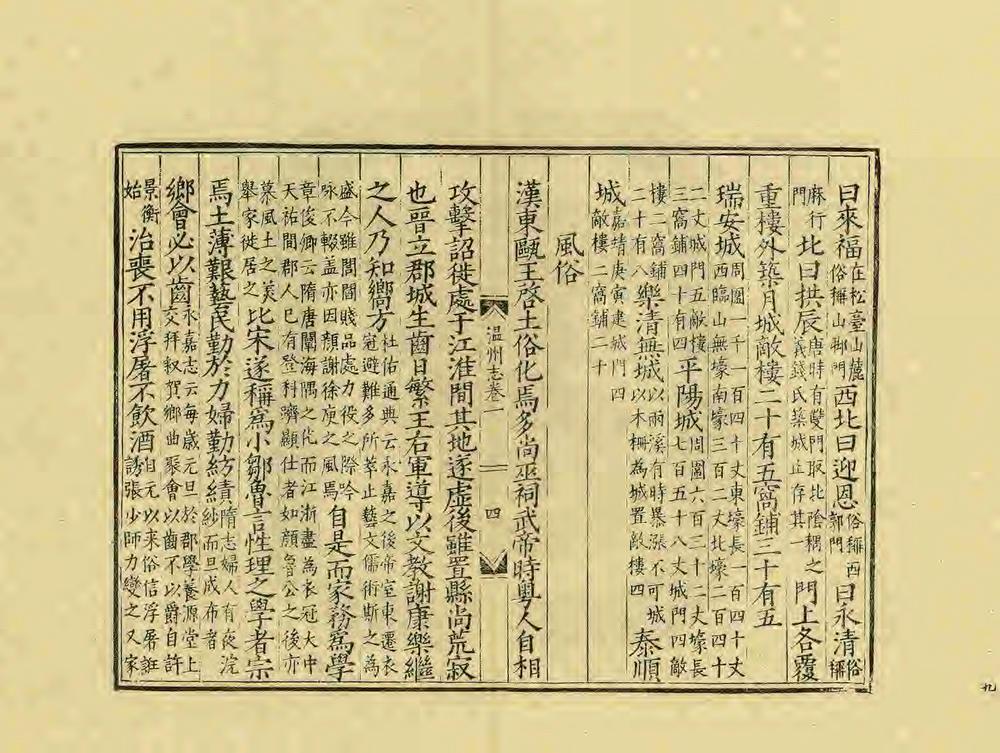 曰來福在松臺山麓俗稱山郫門西北曰迎恩俗稱西郭門曰永清俗稱
麻行門北曰拱辰唐時有雙門取北陰耦之義錢氏築城止存其一門上各覆
重樓外築月城敵樓二十有五窩鋪三十有五
瑞安城周圍一千一百四十丈東壕長一百四十丈西臨山無壕南壕三百二丈北壕二百四十
二丈城門五敵樓三窩鋪四十有四平陽城周圍六百三十二丈壕長七百五十八丈城門四敵
樓二窩鋪二十有八樂清無城以兩溪有時暴漲不可城以木柵為城置敵樓四泰順
城嘉靖庚寅建城門四敵樓二窩鋪二十
風俗
漢東甌王啓土俗化焉多尚巫祠武帝時粵人自相
温州志卷一 四
攻擊詔徙處于江淮間其地遂虛後雖置縣尚荒寂
也晉立郡城生齒日繁王右軍導以文教謝康樂繼
之人乃知嚮方杜佑通典云永嘉之後帝室東遷衣冠避難多所萃止藝文儒術斯之為
盛今雖閭閻賤品處力役之際吟咏不輟蓋亦因顏謝徐庾之風焉自是而家務爲學
章俊卿云隋唐闡海隅之化而江浙盡為衣冠大中天祐間郡人已有登科躋顯仕者如顏魯公之後亦
慕風土之美舉家徙居之比宋遂稱爲小鄒魯言性理之學者宗
焉土薄艱藝民勤於力婦勤紡績隋志婦人有夜浣紗而旦成布者
鄉會必以齒永嘉志云每歲元旦於郡學養源堂上交拜叙賀鄉曲聚會以齒不以爵自許
景衡始治喪不用浮屠不飲酒自元以來俗信浮屠誑誘張少師力變之又家
九